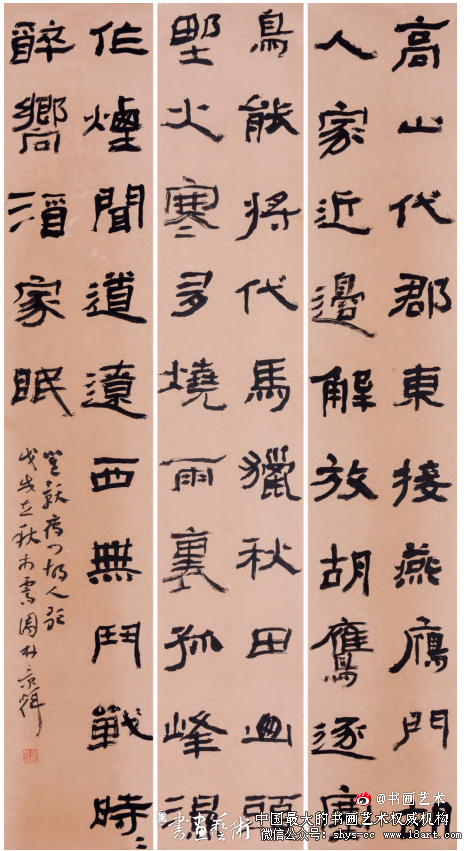 高山代郡東接燕鴈門胡
人家近邊解放胡鷹逐塞
鳥能將代馬獵秋田山頭
野火寒多燒雨裏孤峰濕
作煙聞道遼西無鬥戰時〻
醉嚮酒家眠
崔顥鴈门胡人歌
戊戌立秋
@书画艺术
書畫藝術
中国最大的书画艺术权威机构
微信公众号：shys-cc www.18art.com